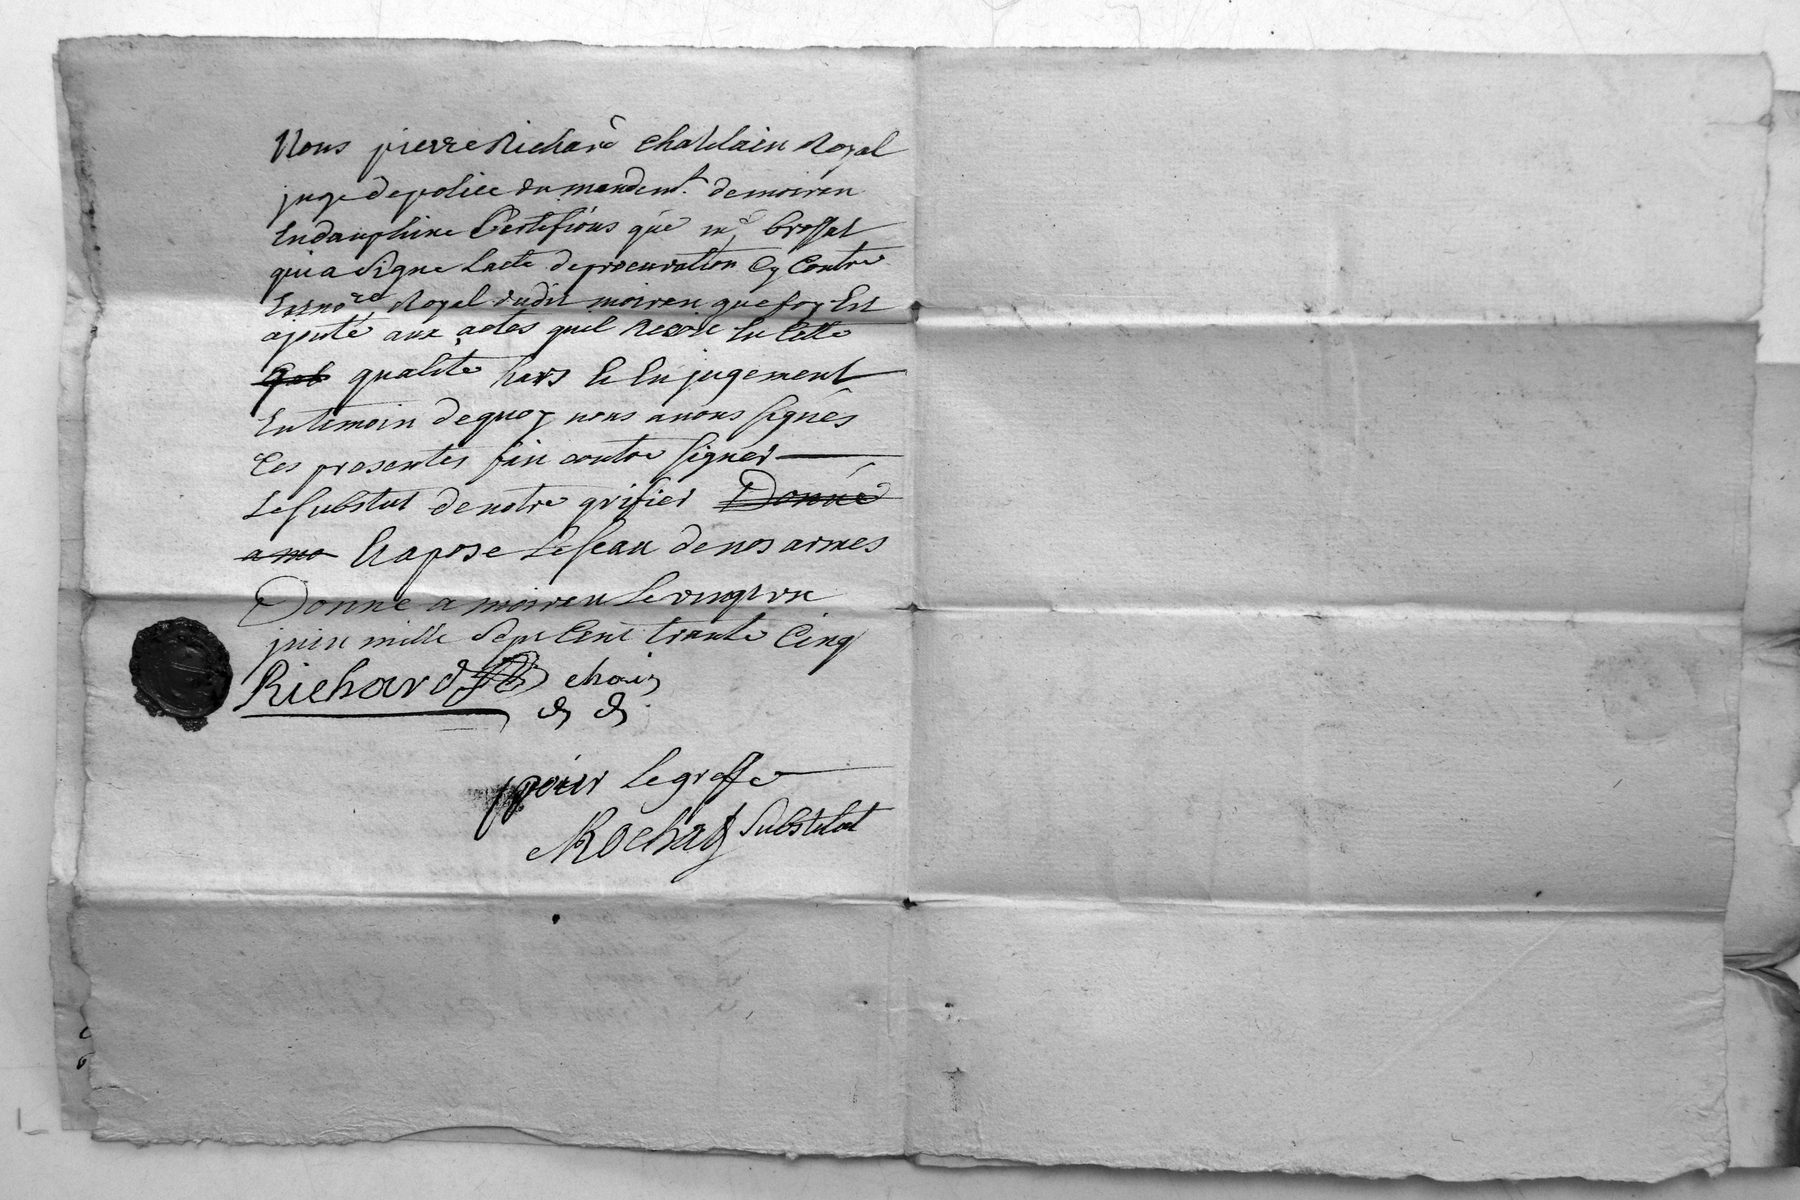 Nous pierre Richard Chatelain Royal
juge depolice du mandemt. demoiren
Endauphine Certifions que me. brossat
quia Signe Lacte deprocuration Cy Contre
Est nore. Royal dudit moiren que foy Est
ajouté aux actes quil Recoit En Cette
qualite hors Et En jugement
En temoin dequoy nous avons signés
Ces presentes fait contre signer
Le substut denotre grifier Donné
a mo Et apose Le sceau denos armes
Donne a moiren Le vingt un
juin mille Sept Cent trante Cinq
Richard chain
pour Le greffe
Rochas Substitut